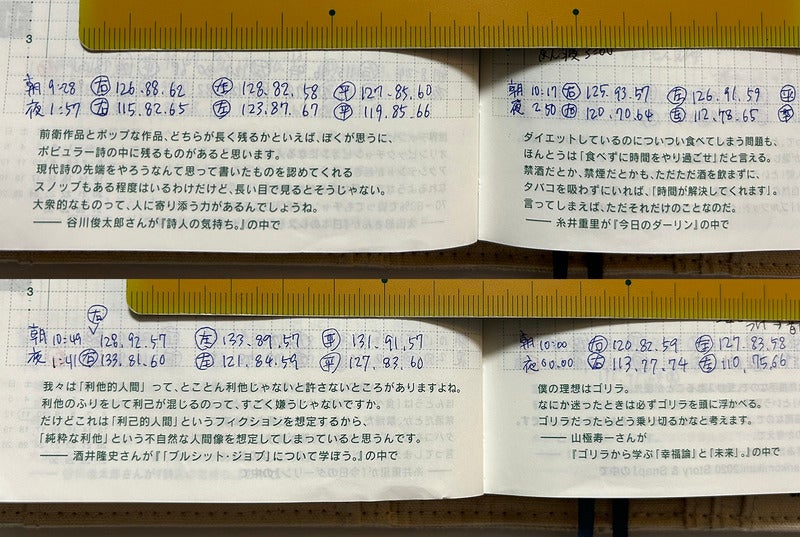 3
朝 9:28 右 126.88.62 左 128.82.58 平 127.85.60
夜 1:57 右 115.82.65 左 123.87.67 平 119.85.66
前衛作品とポップな作品、どちらが長く残るかといえば、ぼくが思うに、
ポピュラー詩の中に残るものがあると思います。
現代詩の先端をやろうなんて思って書いたものを認めてくれる
スノッブもある程度はいるわけだけど、長い目で見るとそうじゃない。
大衆的なものって、人に寄り添う力があるんでしょうね。
── 谷川俊太郎さんが『詩人の気持ち。』の中で
朝 10:17 右 125.93.57 左 126.91.59 平
夜 2:50 右 120.70.64 左 112.78.65 平
ダイエットしているのについつい食べてしまう問題も、
ほんとうは「食べずに時間をやり過ごせ」だと言える。
禁酒だとか、禁煙だとかも、ただただ酒を飲まずに、
タバコを吸わずにいれば、「時間が解決してくれます」。
言ってしまえば、ただそれだけのことなのだ。
── 糸井重里が『今日のダーリン』の中で
3
右
朝 10:49 128.92.57 左 133.89.57 平 131.91.57
夜 1:41 右 133.81.60 左 121.84.59 平 127.83.60
我々は「利他的人間」って、とことん利他じゃないと許さないところがありますよね。
利他のふりをして利己が混じるのって、すごく嫌うじゃないですか。
だけどこれは「利己的人間」というフィクションを想定するから、
「純粋な利他」という不自然な人間像を想定してしまっていると思うんです。
── 酒井隆史さんが『「ブルシット・ジョブ」について学ぼう。』の中で
朝 10:00 右 120.82.59 左 127.83.58
夜 00:00 右 113.77.74 左 110.75.60
僕の理想はゴリラ。
なにか迷ったときは必ずゴリラを頭に浮かべる。
ゴリラだったらどう乗り切るかなと考えます。
── 山極寿一さんが
『ゴリラから学ぶ「幸福論」と「未来」。』の中で